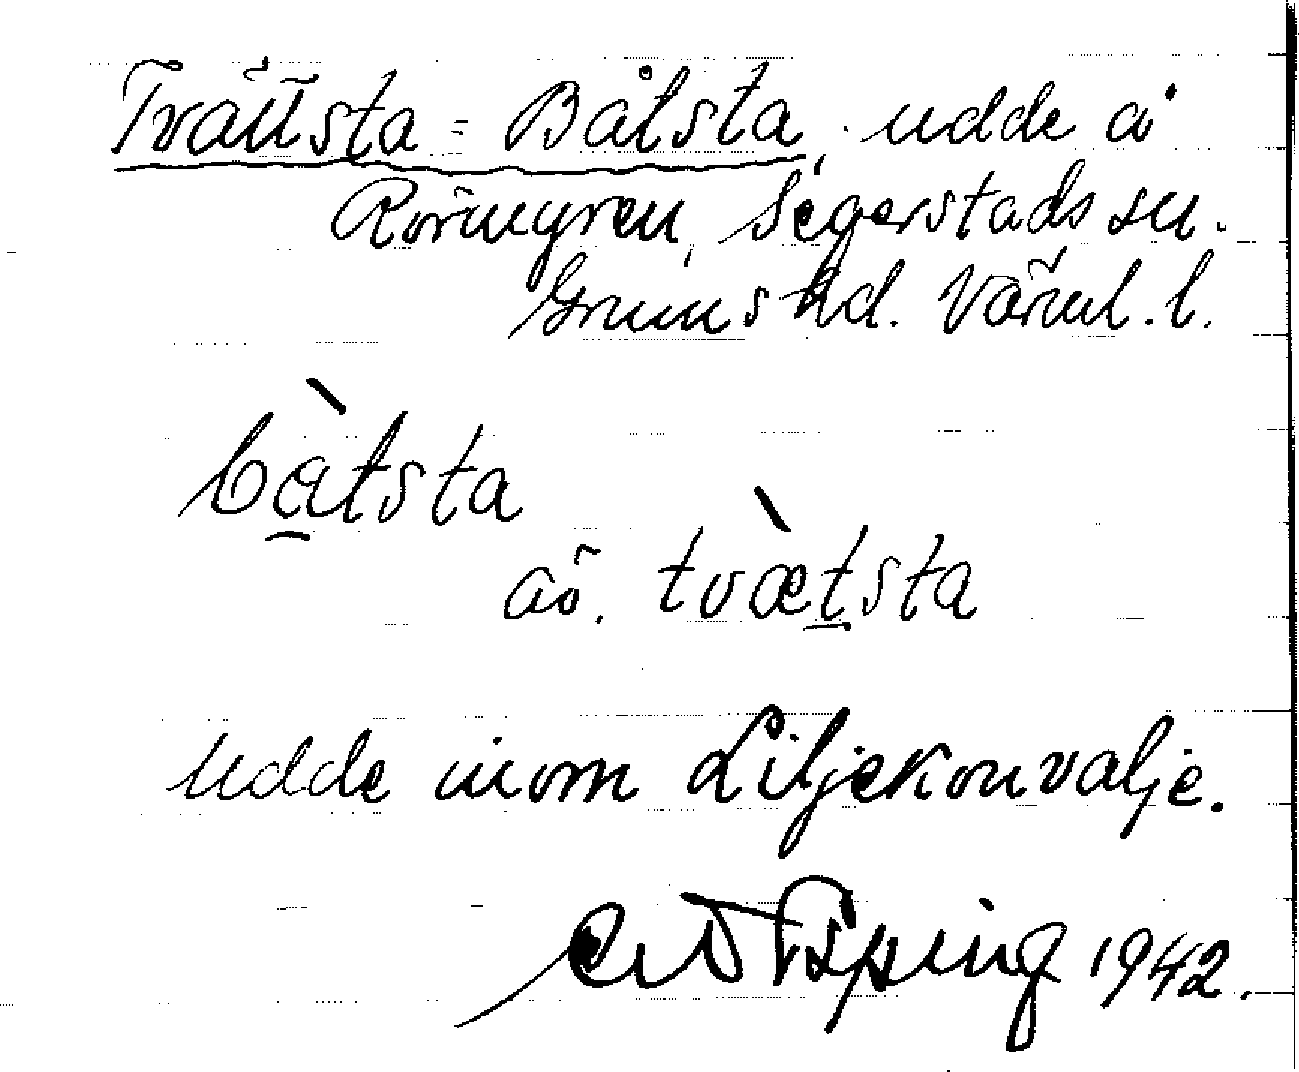 Tvättsta = Båtsta, udde å
Rörmyren, Segerstads sn.
Grums hd. Värml. l.
bàtsta
äv. tvætsta
Udde inom Liljekonvalje.
1942.